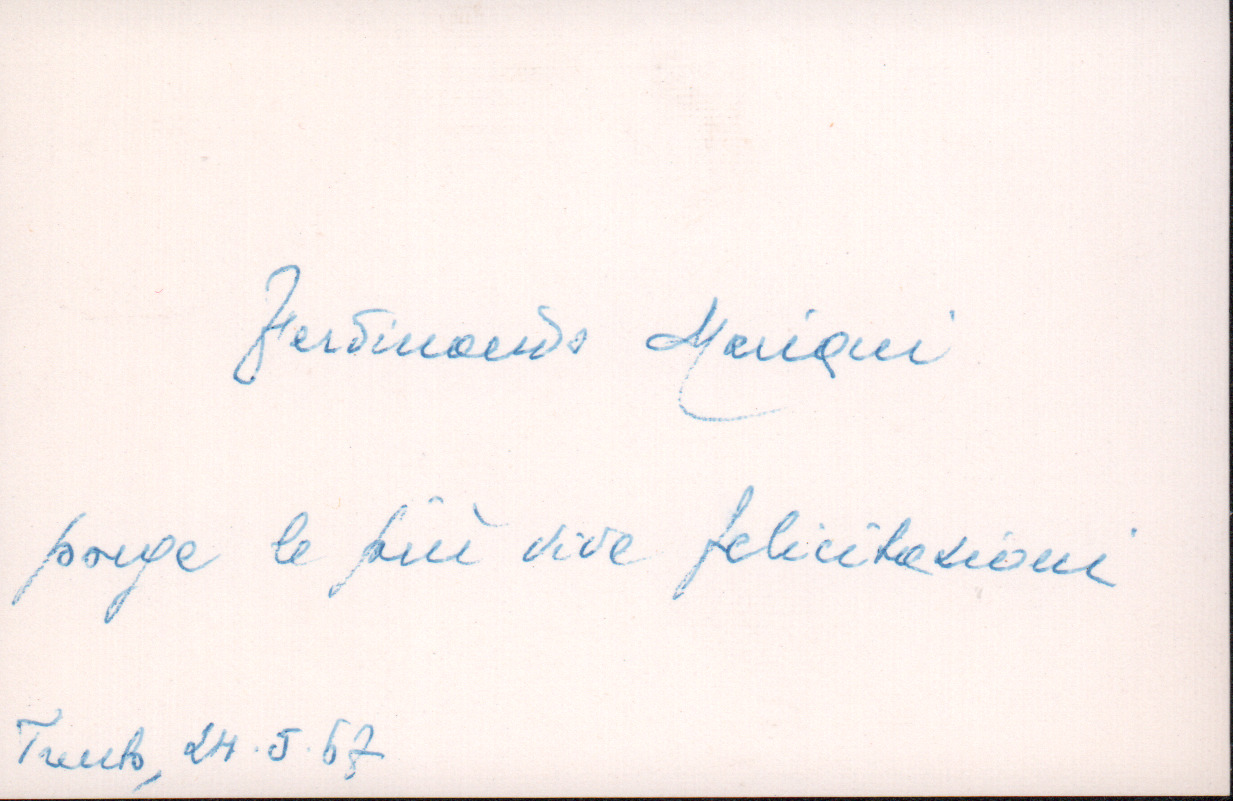 Ferdinando Marigni
porge le più vive felicitazioni
Trento, 24.5.67